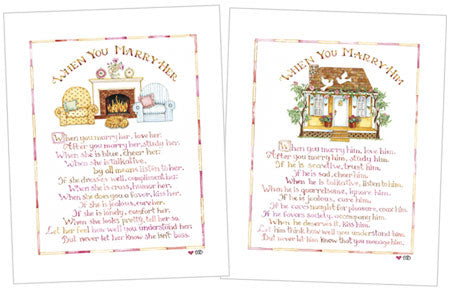 WHEN YOU MARRY HER
When you marry her, love her.
After you marry her, study her.
When she is blue, cheer her.
When she is talkative,
by all means listen to her.
If she dresses well, compliment her.
When she is cross, humor her.
When she does you a favor, kiss her.
If she is jealous, cure her.
If she is lonely, comfort her.
When she looks pretty, tell her so.
Let her feel how well you understand her.
But never let her know she isn't boss.
WHEN YOU MARRY HIM
When you marry him, love him.
After you marry him, study him.
If he is secretive, trust him.
If he is sad, cheer him.
When he is talkative, listen to him.
When he is quarrelsome, ignore him.
If he is jealous, cure him.
If he cares naught for pleasure, coax him.
If he favors society, accompany him.
When he deserves it, kiss him.
Let him think how well you understand him.
But never let him know that you manage him.